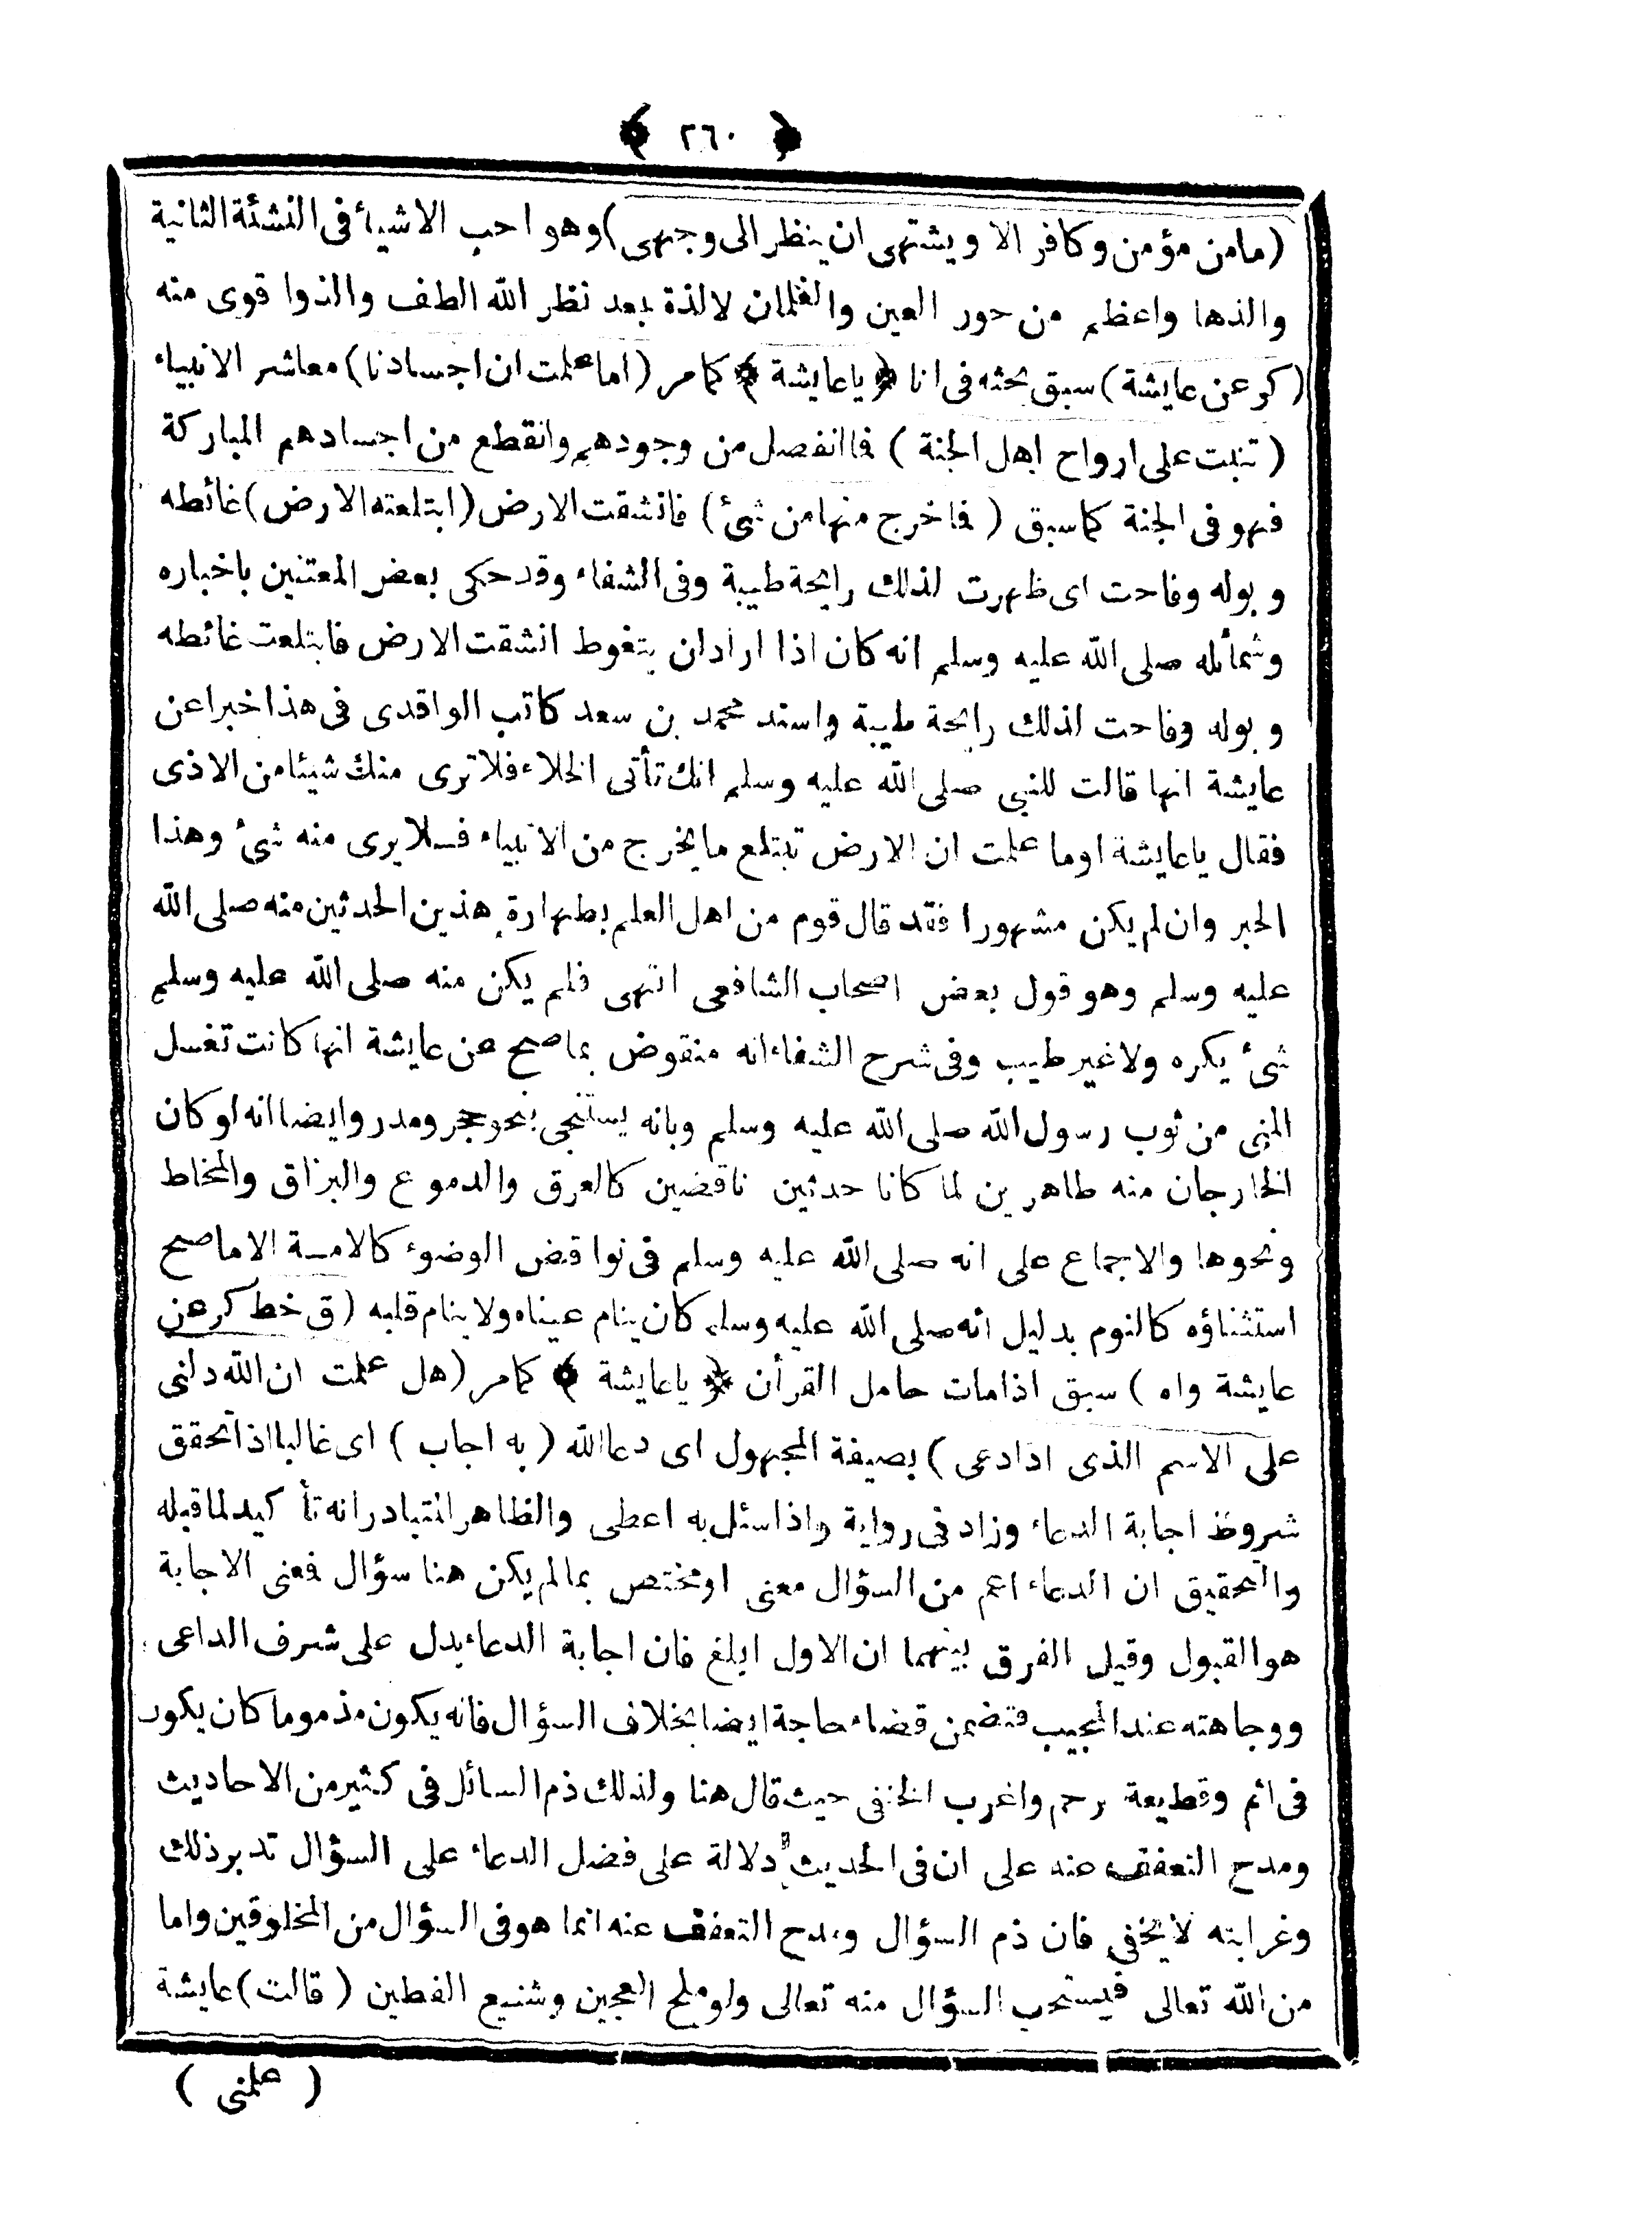 ﴿ ٢٦٠ ﴾
(مامن مؤمن وكافر الا ويشتهى ان ينظر الى وجهى) وهو احب الاشياء فى النشئة الثانية
والذها واعظم من حور العين والغلمان لالذة بعد نظر الله الطف والذوا قوى منه
(كر عن عايشة) سبق بحثه فى انا ﴿ ياعايشة ﴾ كمامر (اماعلمت ان اجسادنا) معاشر الانبياء
(تنبت على ارواح اهل الجنة) فا انفصل من وجودهم وانقطع من اجسادهم المباركة
فهو فى الجنة كماسبق (فاخرج منها من شئ) فانشقت الارض (ابتلعته الارض) غائطه
وبوله وفاحت اى ظهرت لذلك رايحة طيبة وفى الشفاء وقد حكى بعض المعتنين باخباره
وشمائله صلى الله عليه وسلم انه كان اذا ارادان يتغوط انشقت الارض فابتلعت غائطه
وبوله وفاحت لذلك رايحة طيبة واسند محمد بن سعد كاتب الواقدى فى هذا خبرا عن
عايشة انها قالت للنبى صلى الله عليه وسلم انك تأتى الخلاء فلا ترى منك شيئا من الاذى
فقال ياعايشة اوما علمت ان الارض تبتلع مايخرج من الانبياء فسلا يرى منه شئ وهذا
الخبر وان لم يكن مشهورا فقد قال قوم من اهل العلم بطهارة هذين الحدثين منه صلى الله
عليه وسلم وهو قول بعض اصحاب الشافعى انتهى فلم يكن منه صلى الله عليه وسلم
شئ يكره ولا غير طيب وفى شرح الشفاء انه منقوض بماصح عن عايشة انها كانت تغسل
المنى من ثوب رسول الله صلى الله عليه وسلم وبانه يستنجى بنحو حجر ومدر وايضا انه لو كان
الخارجان منه طاهرين لما كانا حدثين ناقضين كالعرق والدموع والبزاق والمخاط
ونحوها والاجماع على انه صلى الله عليه وسلم فى نواقض الوضوء كالامسة الا ماصح
استثناؤه كالنوم بدليل انه صلى الله عليه وسلم كان ينام عيناه ولا ينام قلبه (ق خط كر عن
عايشة واه) سبق اذامات حامل القرأن ﴿ ياعايشة ﴾ كمامر (هل علمت ان الله دلنى
على الاسم الذى اذادعى) بصيغة المجهول اى دعا الله (به اجاب) اى غالبا اذا تحقق
شروط اجابة الدعاء وزاد فى رواية واذا سئل به اعطى والظاهر المتبادر انه تأ كيد لما قبله
والتحقيق ان الدعاء اعم من السؤال معنى او مختص بمالم يكن هنا سؤال فعنى الاجابة
هو القبول وقيل الفرق بينهما ان الاول ابلغ فان اجابة الدعاء يدل على شرف الداعى
ووجاهته عند المجيب فتضمن قضاء حاجة ايضا بخلاف السؤال فانه يكون مذموما كان يكون
فى اثم وقطيعة رحم واغرب الخنفى حيث قال هنا ولذلك ذم السائل فى كثير من الاحاديث
ومدح التعفف عنه على ان فى الحديث دلالة على فضل الدعاء على السؤال تدبر ذلك
وغرابته لايخفى فان ذم السؤال ومدح التعفف عنه انما هو فى السؤال من المخلوقين واما
من الله تعالى فيستحب السؤال منه تعالى ولو ملح العجين وشنيع الفطين (قالت) عايشة
( علمنى )